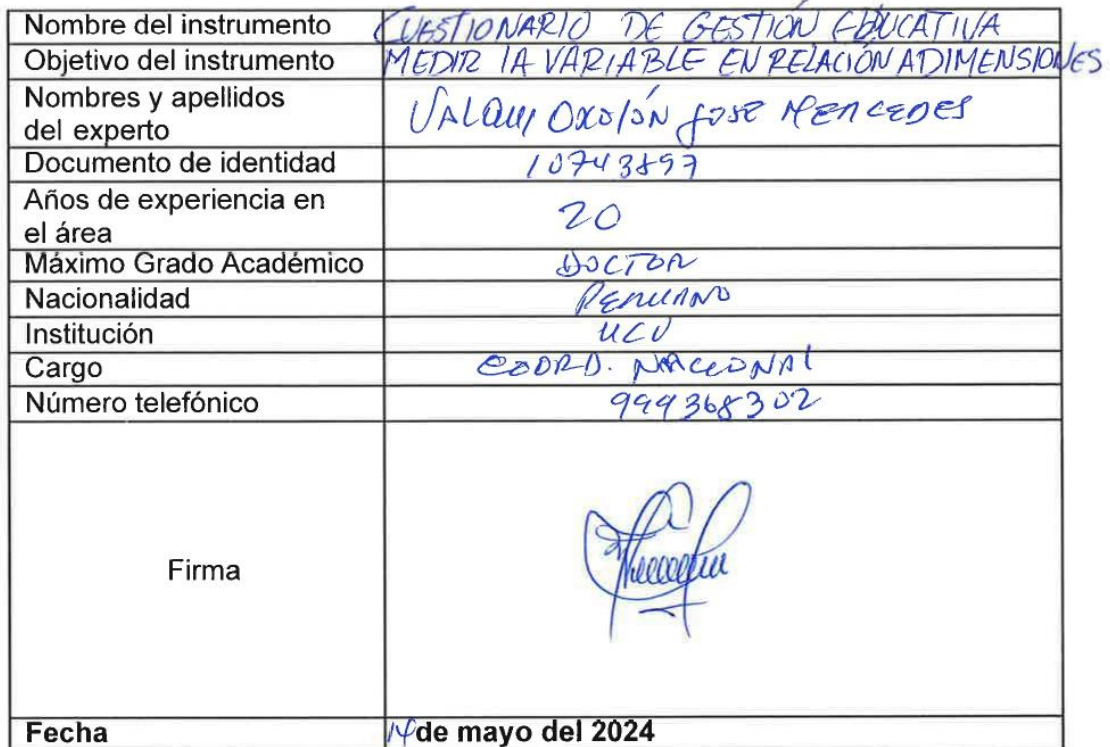 Nombre del instrumento CUESTIONARIO DE GESTIÓN EDUCATIVA
Objetivo del instrumento MEDIR LA VARIABLE EN RELACIÓN A DIMENSIONES
Nombres y apellidos
del experto VALQUI OXOLÓN JOSE MERCEDES
Documento de identidad 10743897
Años de experiencia en
el área 20
Máximo Grado Académico DOCTOR
Nacionalidad PERUANO
Institución UCV
Cargo COORD. NACIONAL
Número telefónico 999368302
Firma
Fecha 14 de mayo del 2024